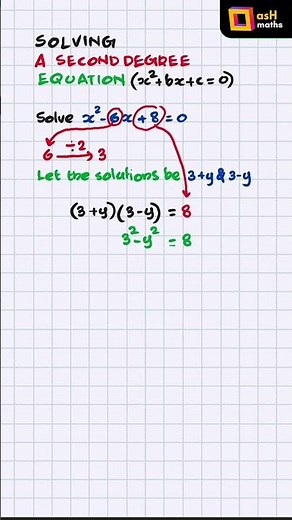 asH
maths
SOLVING
A SECOND DEGREE
EQUATION (x²+bx+c=0)
Solve x²-6x+8=0
÷2
6 → 3
Let the solutions be 3+y & 3-y
(3+y)(3-y) = 8
3²-y² = 8